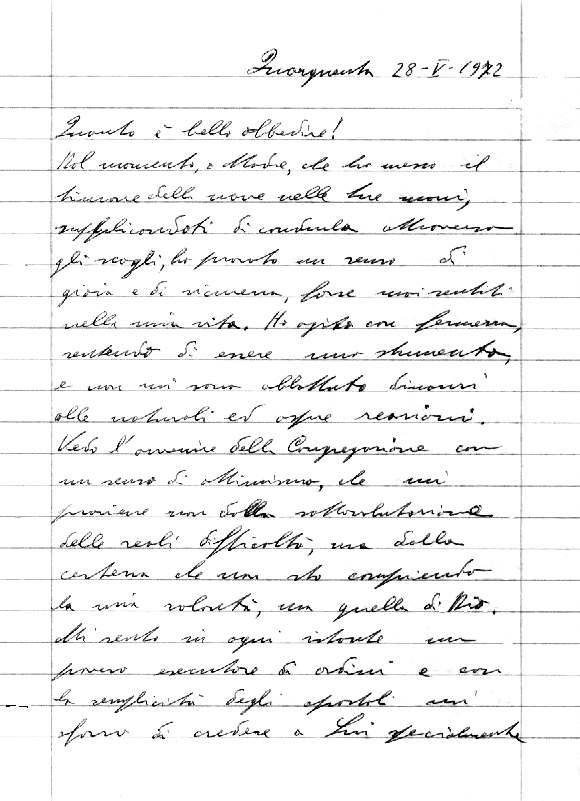 Quarquenta 28-V-1972
Quanto è bello obbedire!
Nel momento, o Madre, che ho messo il
timone della nave nelle tue mani,
supplicandoti di condurla attraverso
gli scogli, ho provato un senso di
gioia e di sicurezza, forse mai sentiti
nella mia vita. Ho agito con fermezza,
sentendo di essere uno strumento,
e non mi sono abbattuto dinanzi
alle naturali ed aspre reazioni.
Vedo l'avvenire della Congregazione con
un senso di ottimismo, che mi
proviene non dalla sottovalutazione
delle reali difficoltà, ma dalla
certezza che non sto compiendo
la mia volontà, ma quella di Dio.
Mi sento in ogni istante un
povero esecutore di ordini e con
la semplicità degli apostoli mi
sforzo di credere a Lui specialmente